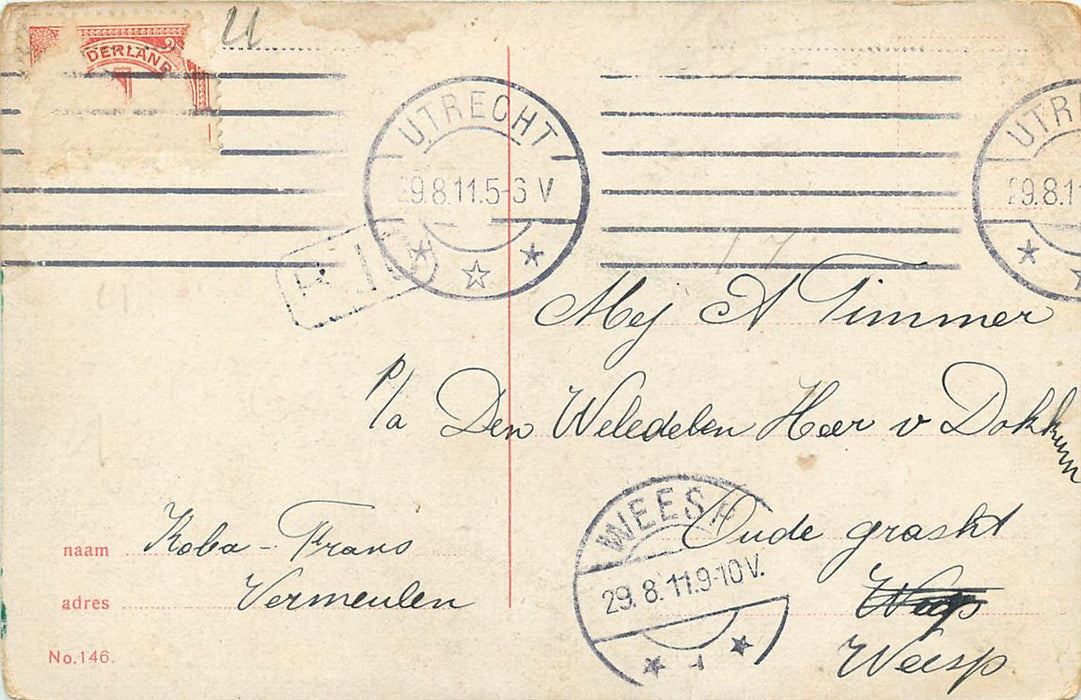 DERLAND
UTRECHT
29.8.11.5-6 V
UTR
29.8.1
Mej A Timmer
p/a Den Weledelen Heer v Dokkum
WEESP
29.8.11.9-10V.
Oude gracht
Weesp
Weesp
naam Koba - Frans
adres Vermeulen
No.146.